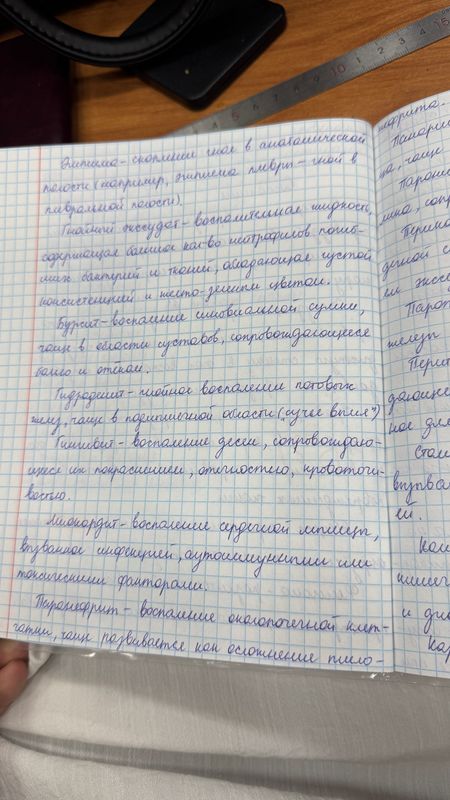 Эмпиема - скопление гноя в анатомической
полости (например, эмпиема плевры - гной в
плевральной полости).
Гнойный экссудат - воспалительная жидкость,
содержащая большое кол-во нейтрофилов, погиб-
ших бактерий и тканей, обладающая густой
консистенцией и желто-зеленым цветом.
Бурсит - воспаление синовиальной сумки,
чаще в области суставов, сопровождающееся
болью и отёком.
Гидраденит - гнойное воспаление потовых
желез, чаще в подмышечной области ("сучье вымя")
Гингивит - воспаление десен, сопровождаю-
щееся их покраснением, отечностью, кровоточи-
востью.
Миокардит - воспаление сердечной мышцы,
вызванное инфекцией, аутоиммунными или
токсическими факторами.
Паранефрит - воспаление околопочечной клет-
чатки, чаще развивается как осложнение пиело-
нефрита.
ца, чаще
Пери
желез
Пери
ное
вызва
ей.
и
Кар
5 10 15